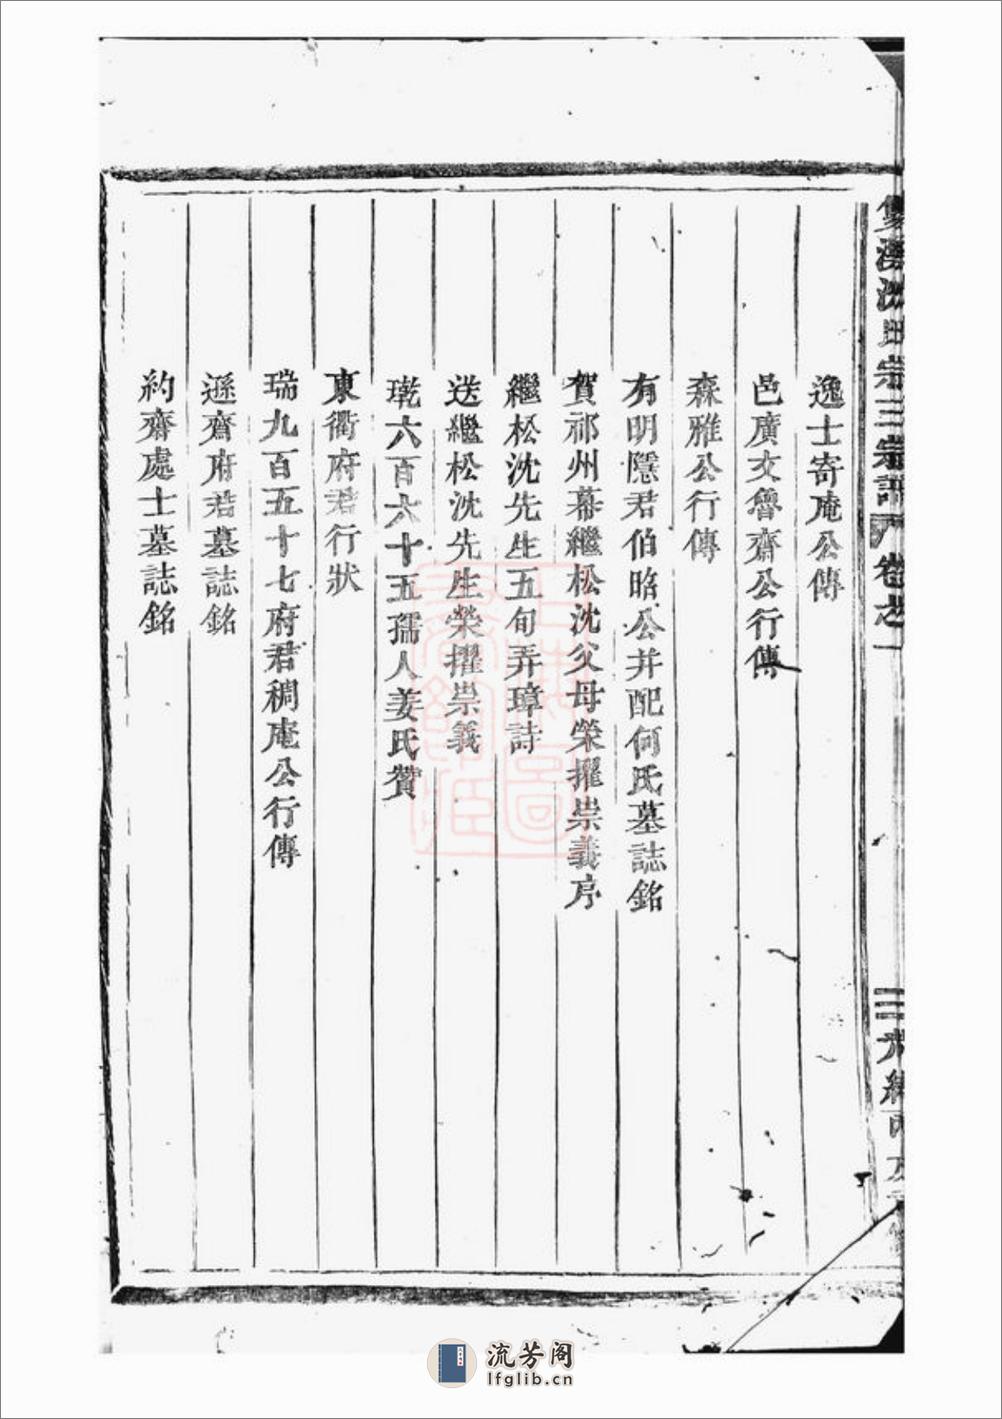 沈氏宗三宗譜 卷之一
三
逸士寄庵公傳
邑廣文魯齋公行傳
森雅公行傳
有明隱君伯晗公并配何氏墓誌銘
賀祁州幕繼松沈父母榮擢崇義序
繼松沈先生五旬弄璋詩
送繼松沈先生榮擢崇義
乾六百六十五孺人姜氏贊
東衢府君行狀
瑞九百五十七府君稠庵公行傳
遜齋府君墓誌銘
約齋處士墓誌銘
上海圖書館藏
流芳阁
lfglib.cn